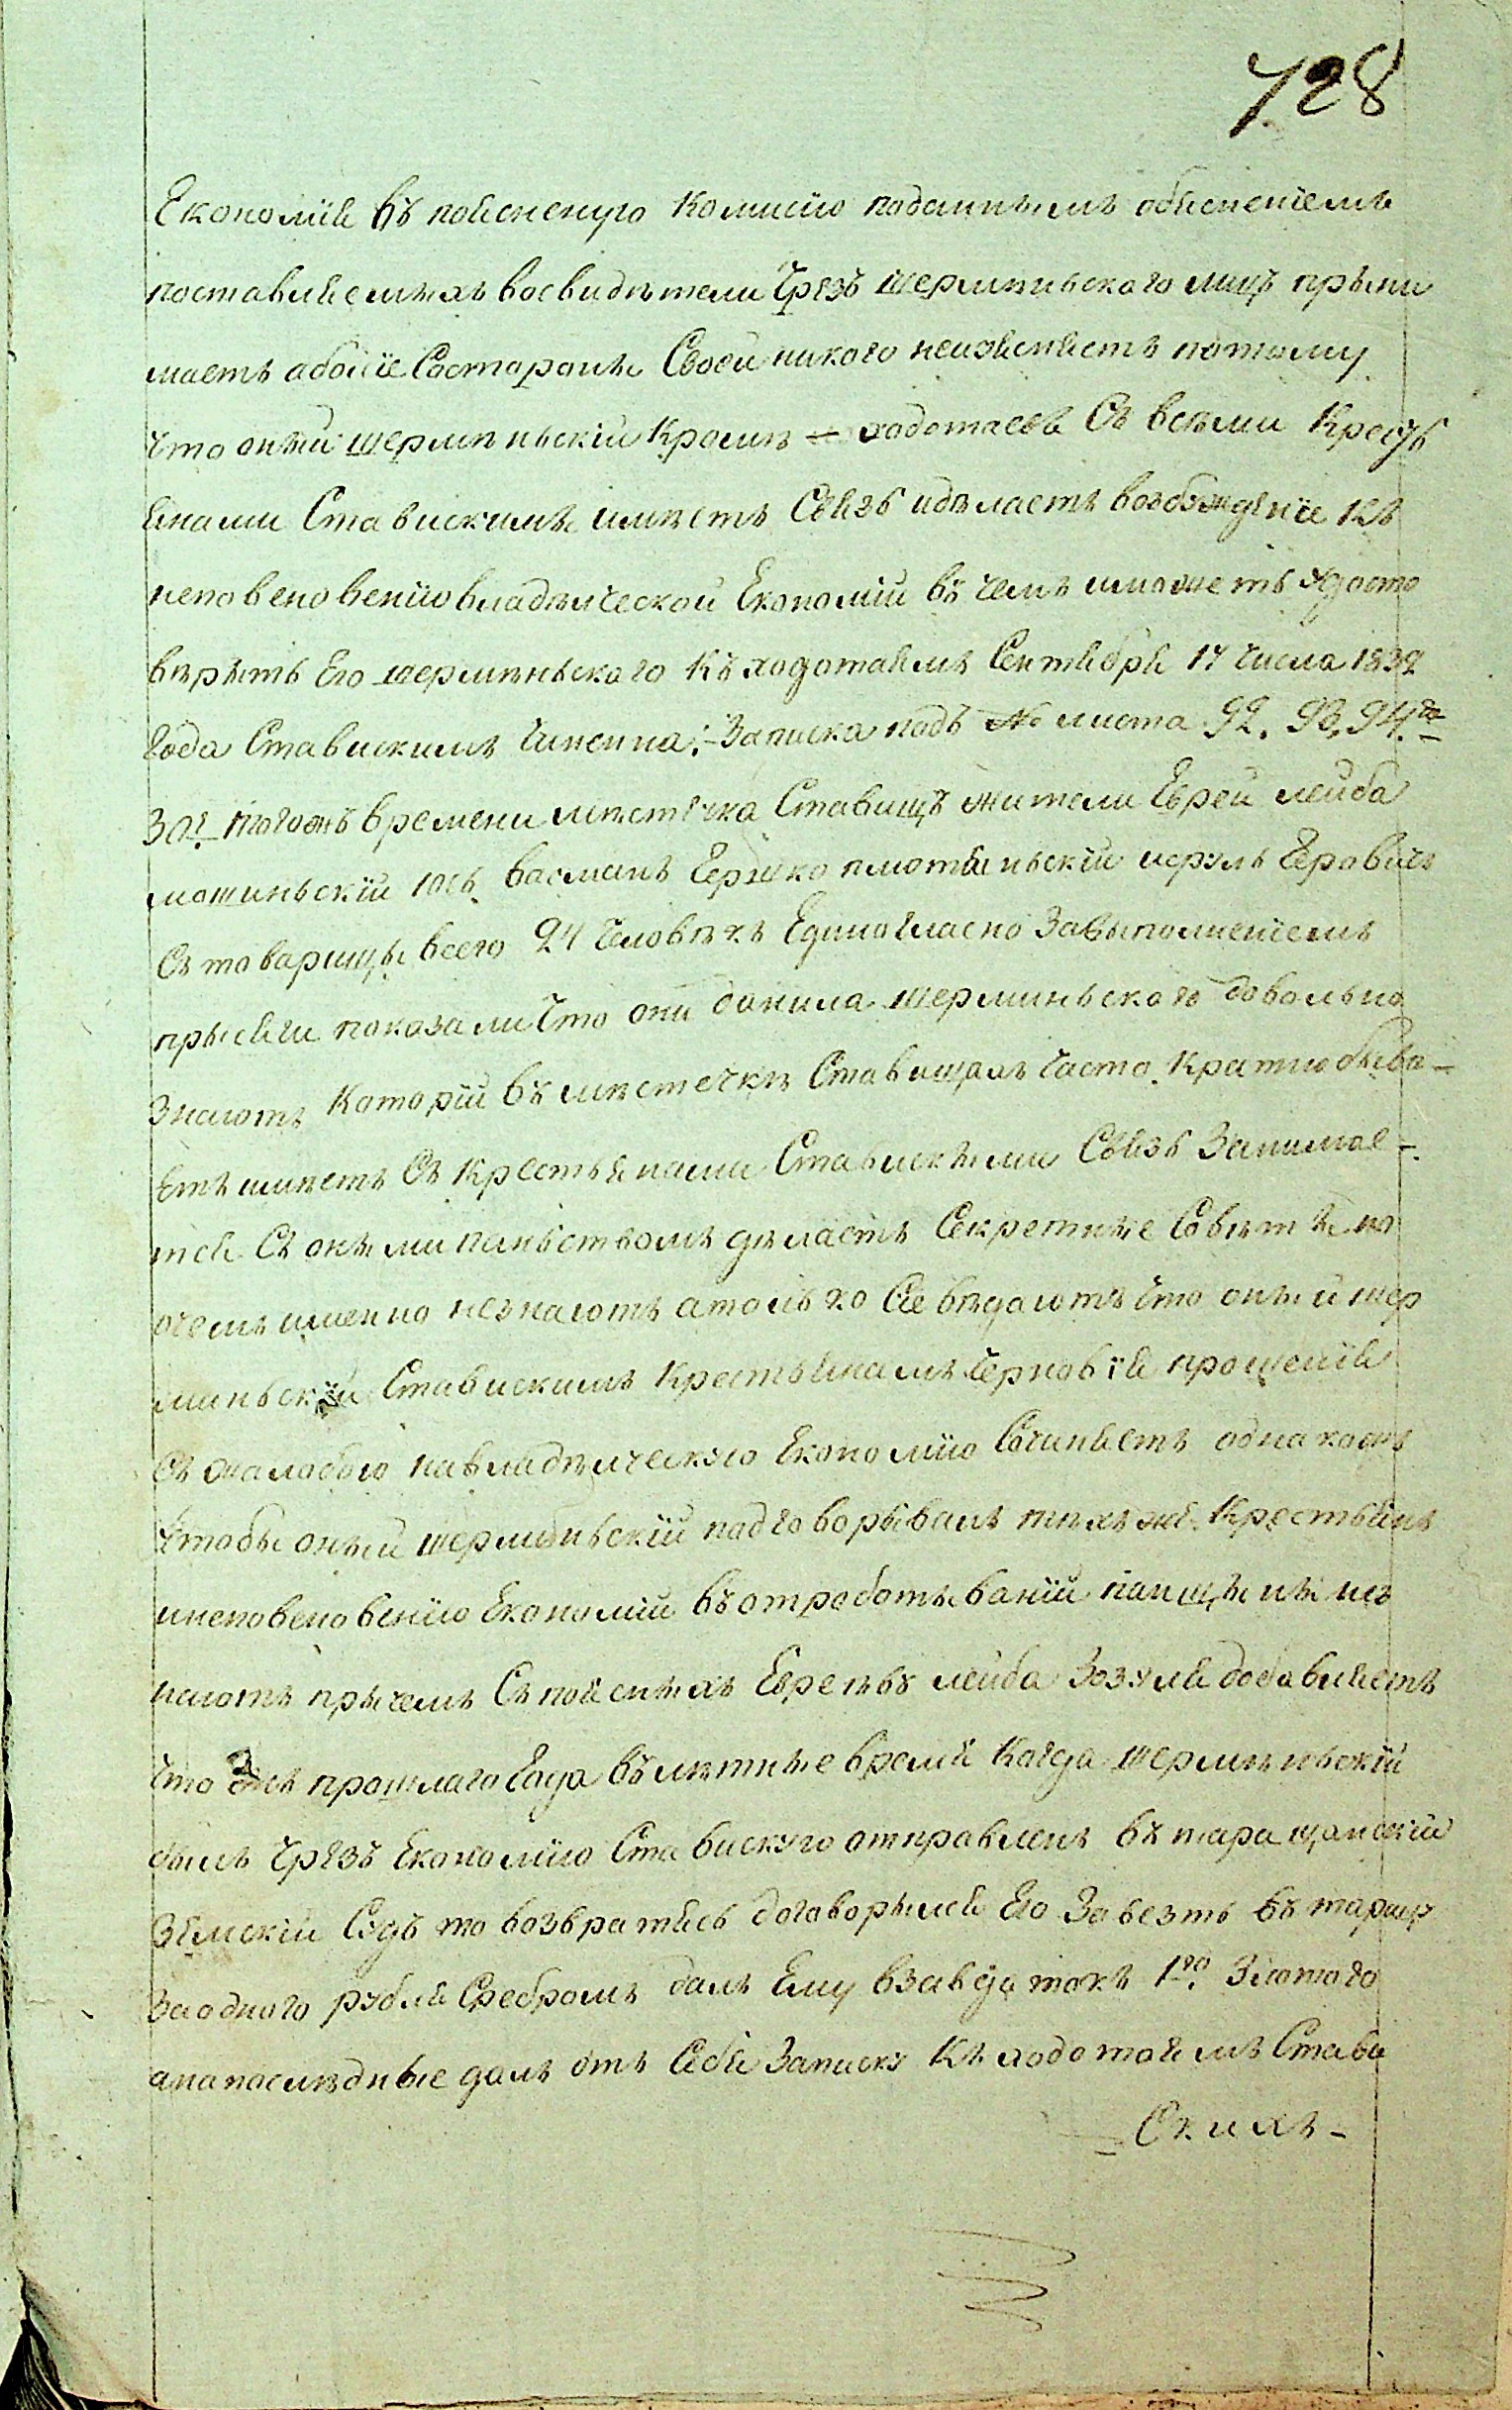 728
Економіи въ поясненую Комисію поданнымъ обясненіемъ
поставляемыхъ восвидѣтели Чрезъ шермѣньского лицъ прыни
маетъ аболіе Состароны Своей никого неизясняетъ потому
что оный шермѣньскій Кромѣ — ходотаевъ Съ всѣми Кресть
янами Ставискимы имѣетъ Связь идѣлаетъ возбужденіе Къ
неповеновенію владѣлческой Економіи въ чемъ иможетъ удосто
вѣрыть Его шермѣньского Къ ходотаямъ Сентября 17 числа 1832
Года Ставискимъ Писенна: Записка подъ № листа 92. 93, 94.
30е Тогожъ времени мѣстечка Ставищъ жители Евреи лейба
мошиньскій Іось васманъ Гершко плотяньскій исруль Геровичъ
Съ товарищы всего 24 Человѣкъ Единогласно Завыполненіемъ
прысяги показали Что они данила шерминьского довольно
Знаютъ Которій въ мѣстечкѣ Ставищахъ часто Кратно быва-
Етъ имѣетъ Съ Крестьянами Ставискыми Связь Занимае-
тся Съ оными пянъством дѣлаетъ Секретные Совѣты но
очемъ именно незнаютъ атолько Сіе вѣдаютъ Что оный шер
миньскій Ставискимъ Крестьянамъ Черновія прошенія
Съ жалобою навладѣлческую Економію Сочиняетъ однакожъ
Чтобы оный шермѣньскій подговорывалъ тѣхъ же Крестьянъ
кнеповеновенію Економіи въ отработываніи панщыны нез
наютъ прычемъ Съ пойсныхъ Евреевъ лейба Зозуля добавляетъ
что прошлаго Года въ лѣтные время Когда шермѣньскій
былъ Чрезъ Економію Ставискую отправленъ въ таращанскій
Земскій Судъ то возвратясь договорылся Его Завезть въ таращу
Заодного рубля Сребромъ далъ Ему взавдатокъ 1го Злотого
анапослѣдные далъ отъ Себя Записку Къ ходотаямъ Стави
Скихъ -